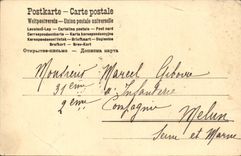 Postkarte — Carte postale
Weltpostverein — Union postale universelle
Levelező-Lap — Cartolina postale — Post card
Correspondenzkarte — Karta korespondencyjna
Korespondenční lístek — Briefkaart — Dopisnice
Brefkort — Brev-Kort
Открытое письмо — Дописна карта
Monsieur Marcel
31eme d'Infanterie
2eme Compagnie
Melun
Seine et Marne